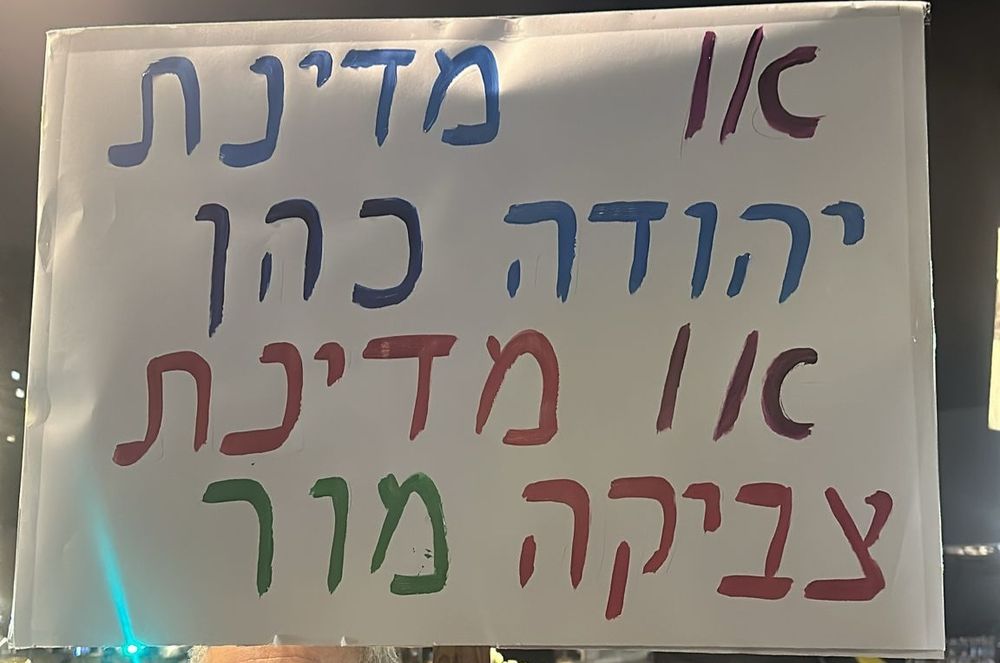 או מדינת
יהודה כהן
או מדינת
צביקה מור